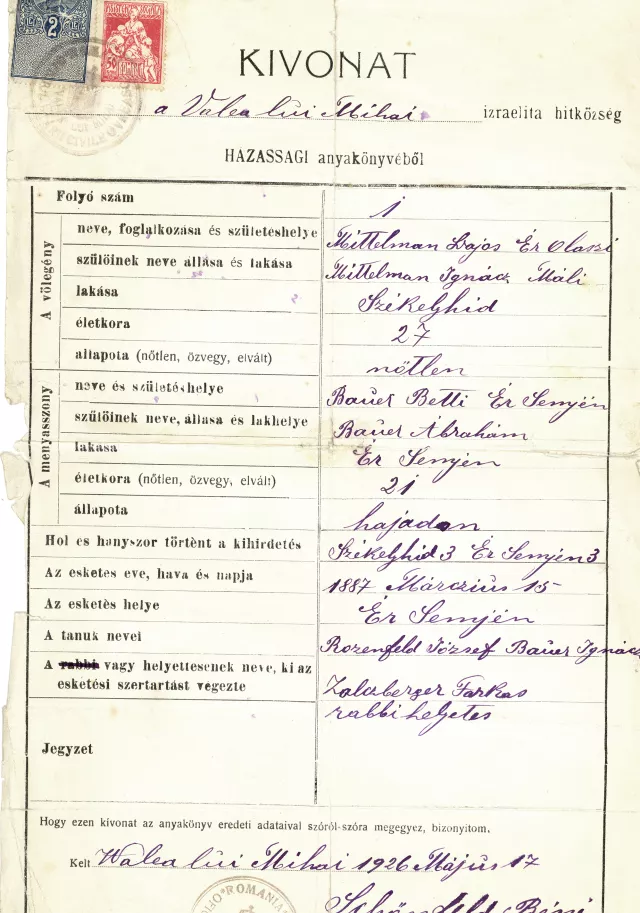 2
50
ROMANIA
KIVONAT
a Valea lui Mihai izraelita hitközség
HAZASSAGI anyakönyvéből
Folyó szám 1
A völegény
neve, foglalkozása és születéshelye Mittelman Lajos Ér Olaszi
szülöinek neve állása és lakása Mittelman Ignácz Máli
lakása Székelyhid
életkora 27
állapota (nőtlen, özvegy, elvált) nötlen
A menyasszony
neve és születéshelye Bauer Betti Ér Semjén
szülöinek neve, állása és lakhelye Bauer Ábrahám
lakása Ér Semjén
életkora (nőtlen, özvegy, elvált) 21
állapota hajadon
Hol es hanyszor történt a kihirdetés Székelyhid 3 Ér Semjén 3
Az esketes eve, hava és napja 1887 Márczius 15
Az esketès helye Ér Semjén
A tanuk nevei Rozenfeld József Bauer Ignácz
A rabbi vagy helyettesenek neve, ki az
esketési szertartást végezte Zalczberger Farkas
rabbi helyetes
Jegyzet
Hogy ezen kivonat az anyakönyv eredeti adataival szóról-szóra megegyez, bizonyitom.
Kelt Walea lui Mihai 1926 Május 17
ROMANIA